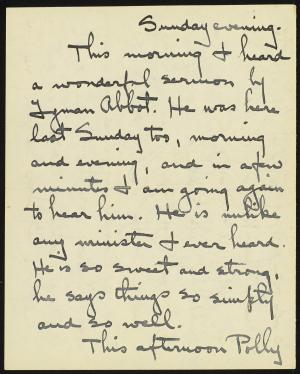 Sunday evening.
This morning I heard
a wonderful sermon by
Lyman Abbot. He was here
last Sunday too, morning
and evening, and in a few
minutes I am going again
to hear him. He is unlike
any minister I ever heard.
He is so sweet and strong,
he says things so simply
and so well.
This afternoon Polly